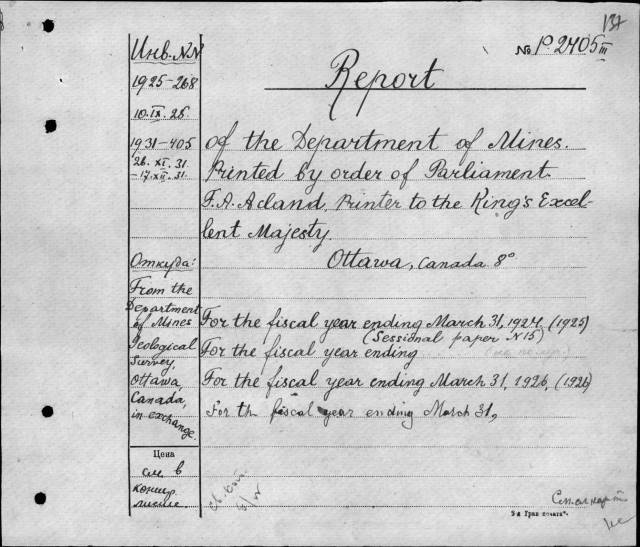 137
№ Р 2405 III
Инв. NN
1925-268
10.IX.25.
1931-405
26. XI. 31
-17. XII. 31.
Report
of the Department of Mines.
Printed by order of Parliament.
F.A. Acland, Printer to the King's Excel-
lent Majesty.
Ottawa, Canada 8°
Откуда:
From the
Department
of Mines
Geological
Survey,
Ottawa,
Canada,
in exchange.
For the fiscal year ending March 31, 1924, (1925)
(Sessional paper N 15)
For the fiscal year ending
For the fiscal year ending March 31, 1926, (1926)
For th fiscal year ending March 31,
Цена
см. в
См. на карт